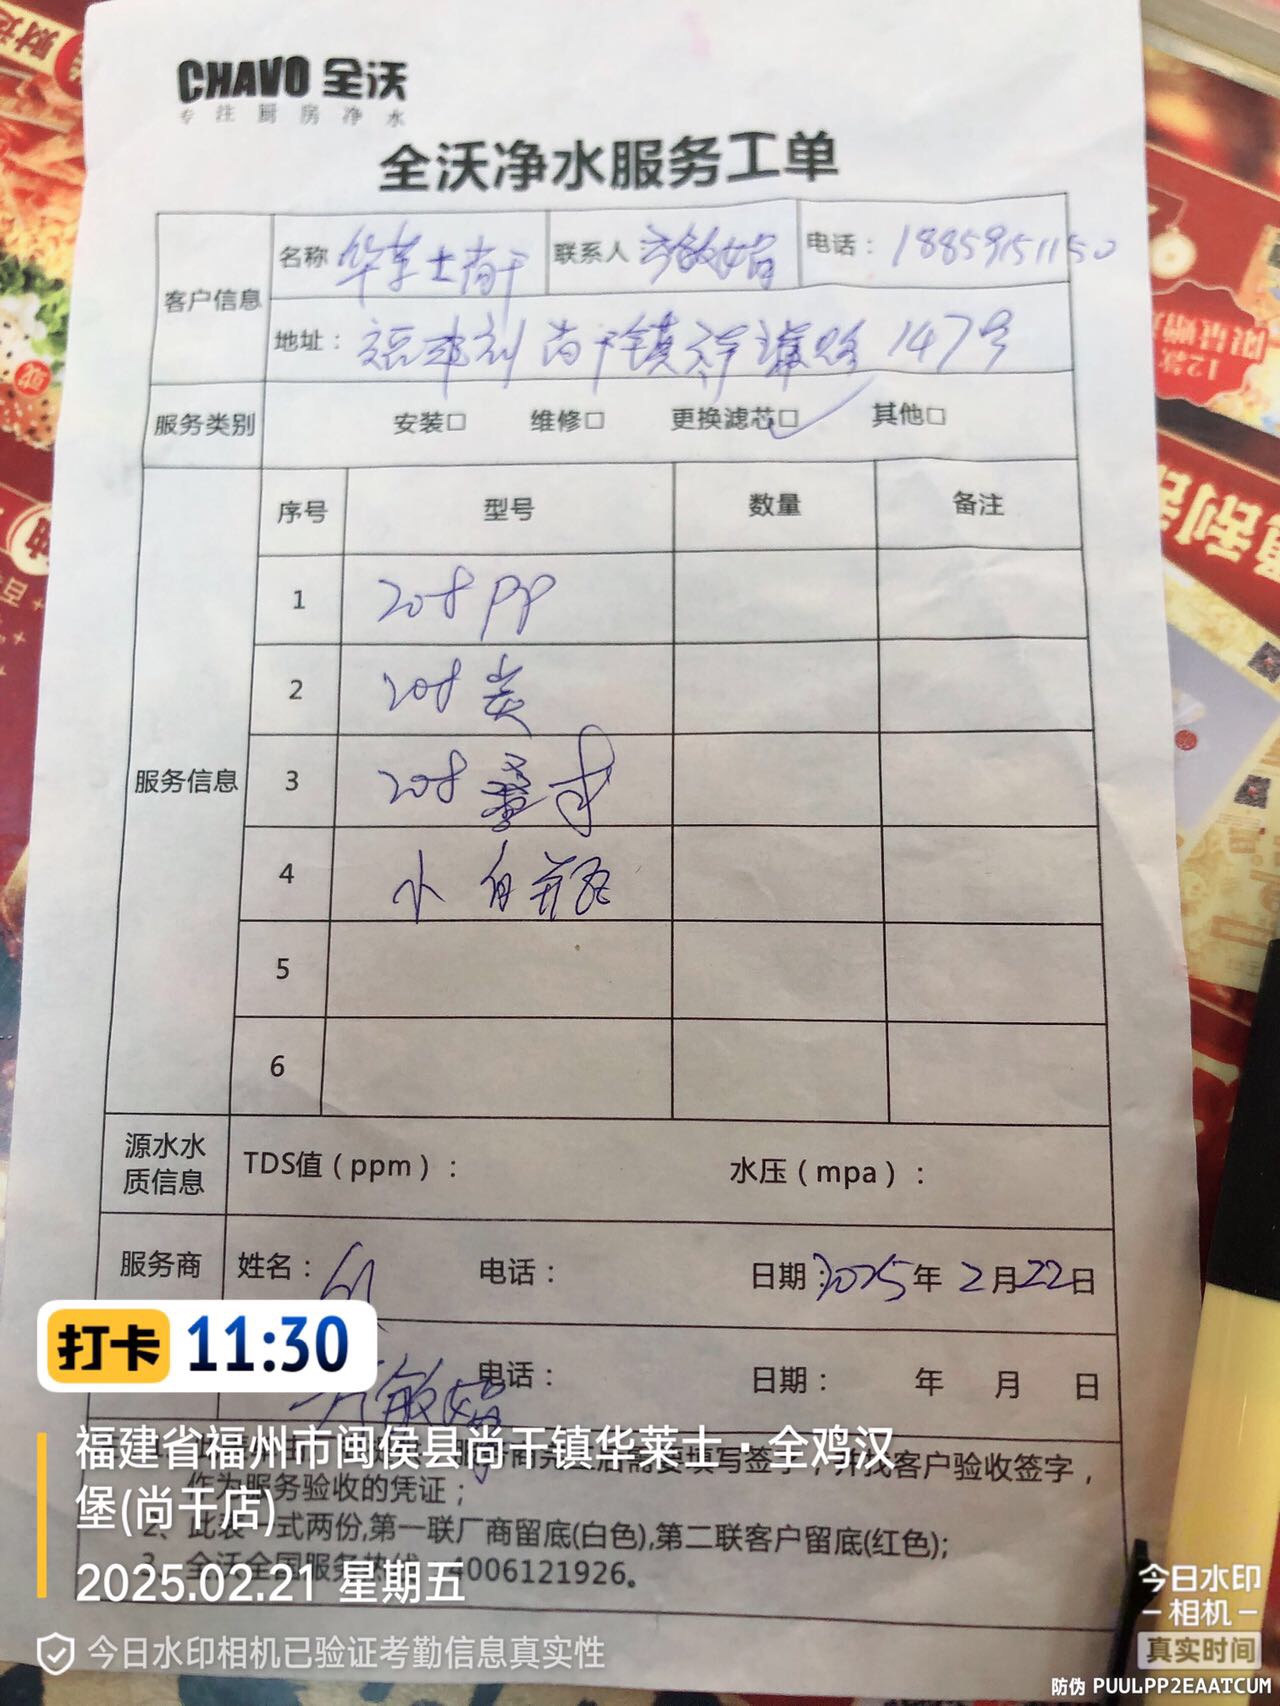 CHAVO 全沃
专注厨房净水
全沃净水服务工单
客户信息 名称 华莱士尚干 联系人 敏娟 电话：18859151150
地址： 尚干镇 147号
服务类别 安装□ 维修□ 更换滤芯□✓ 其他□
服务信息
序号 型号 数量 备注
1 20寸PP
2 20寸炭
3 20寸
4 小白瓶
5
6
源水水质信息 TDS值（ppm）： 水压（mpa）：
服务商 姓名： 电话： 日期：2025年2月22日
敏 电话： 日期： 年 月 日
打卡 11:30
需要填写签字，并找客户验收签字，
作为服务验收的凭证；
2、此表一式两份,第一联厂商留底(白色),第二联客户留底(红色);
3、全沃全国服务热线 4006121926。
福建省福州市闽侯县尚干镇华莱士·全鸡汉
堡(尚干店)
2025.02.21 星期五
今日水印相机已验证考勤信息真实性
今日水印
相机
真实时间
防伪 PUULPP2EAATCUM
12款